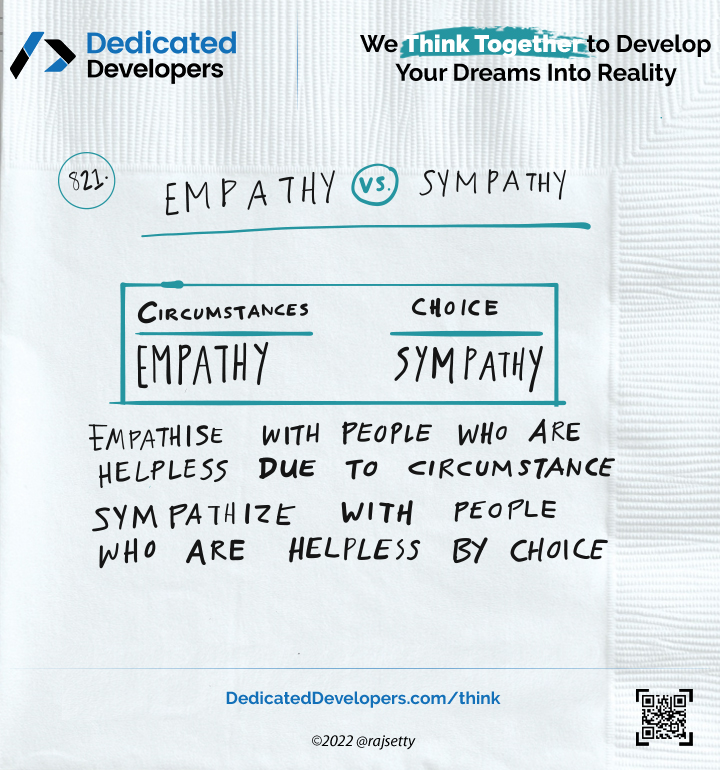 Dedicated
Developers
We Think Together to Develop
Your Dreams Into Reality
821.
EMPATHY VS. SYMPATHY
CIRCUMSTANCES CHOICE
EMPATHY SYMPATHY
EMPATHISE WITH PEOPLE WHO ARE
HELPLESS DUE TO CIRCUMSTANCE
SYMPATHIZE WITH PEOPLE
WHO ARE HELPLESS BY CHOICE
DedicatedDevelopers.com/think
©2022 @rajsetty